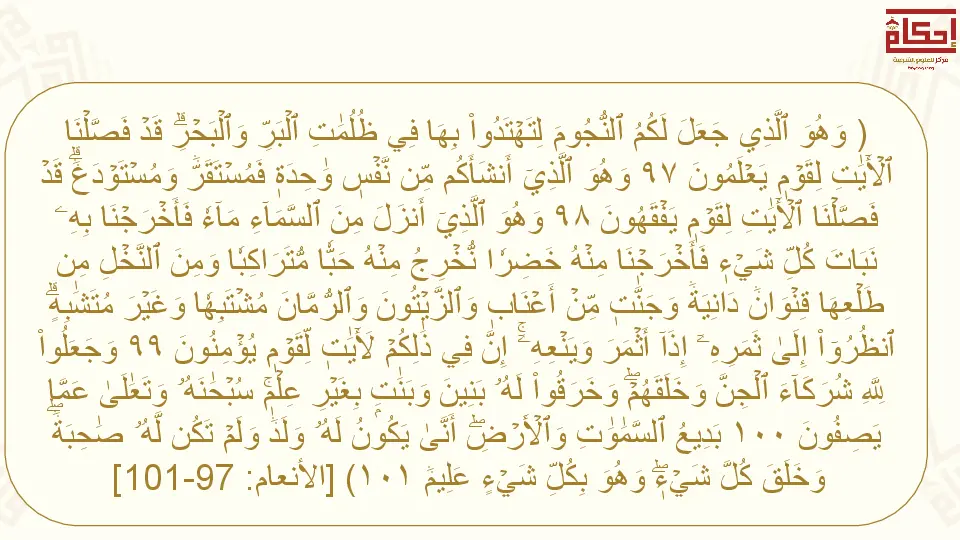 إحكام
مركز للعلوم الشرعية
( وَهُوَ ٱلَّذِي جَعَلَ لَكُمُ ٱلنُّجُومَ لِتَهۡتَدُواْ بِهَا فِي ظُلُمَٰتِ ٱلۡبَرِّ وَٱلۡبَحۡرِۗ قَدۡ فَصَّلۡنَا
ٱلۡأٓيَٰتِ لِقَوۡمٖ يَعۡلَمُونَ ٩٧ وَهُوَ ٱلَّذِيٓ أَنشَأَكُم مِّن نَّفۡسٖ وَٰحِدَةٖ فَمُسۡتَقَرّٞ وَمُسۡتَوۡدَعٞۗ قَدۡ
فَصَّلۡنَا ٱلۡأٓيَٰتِ لِقَوۡمٖ يَفۡقَهُونَ ٩٨ وَهُوَ ٱلَّذِيٓ أَنزَلَ مِنَ ٱلسَّمَآءِ مَآءٗ فَأَخۡرَجۡنَا بِهِۦ
نَبَاتَ كُلِّ شَيۡءٖ فَأَخۡرَجۡنَا مِنۡهُ خَضِرٗا نُّخۡرِجُ مِنۡهُ حَبّٗا مُّتَرَاكِبٗا وَمِنَ ٱلنَّخۡلِ مِن
طَلۡعِهَا قِنۡوَانٞ دَانِيَةٞ وَجَنَّٰتٖ مِّنۡ أَعۡنَابٖ وَٱلزَّيۡتُونَ وَٱلرُّمَّانَ مُشۡتَبِهٗا وَغَيۡرَ مُتَشَٰبِهٍۗ
ٱنظُرُوٓاْ إِلَىٰ ثَمَرِهِۦٓ إِذَآ أَثۡمَرَ وَيَنۡعِهِۦٓۚ إِنَّ فِي ذَٰلِكُمۡ لَأٓيَٰتٖ لِّقَوۡمٖ يُؤۡمِنُونَ ٩٩ وَجَعَلُواْ
لِلَّهِ شُرَكَآءَ ٱلۡجِنَّ وَخَلَقَهُمۡۖ وَخَرَقُواْ لَهُۥ بَنِينَ وَبَنَٰتِۭ بِغَيۡرِ عِلۡمٖۚ سُبۡحَٰنَهُۥ وَتَعَٰلَىٰ عَمَّا
يَصِفُونَ ١٠٠ بَدِيعُ ٱلسَّمَٰوَٰتِ وَٱلۡأَرۡضِۖ أَنَّىٰ يَكُونُ لَهُۥ وَلَدٞ وَلَمۡ تَكُن لَّهُۥ صَٰحِبَةٞۖ
وَخَلَقَ كُلَّ شَيۡءٖۖ وَهُوَ بِكُلِّ شَيۡءٍ عَلِيمٞ ١٠١) [الأنعام: 97-101]